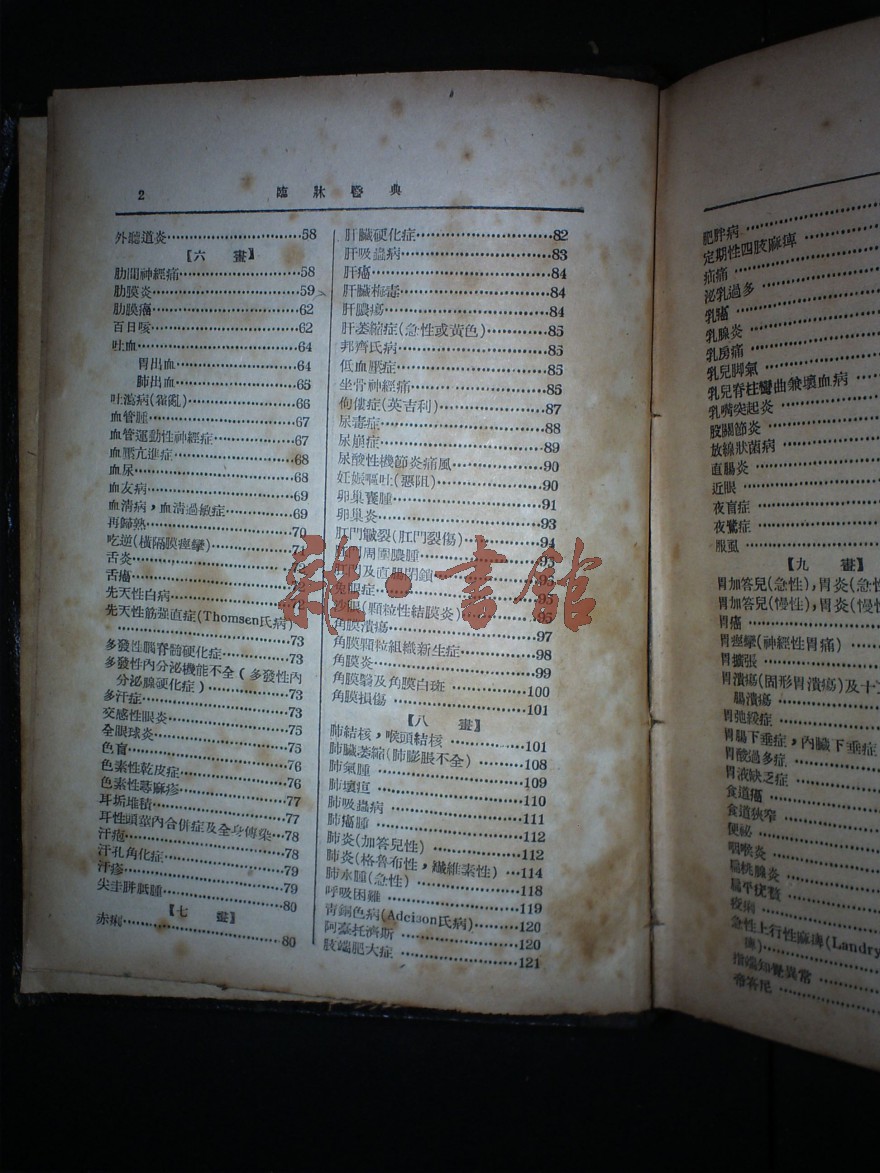 2
臨牀醫典
外聽道炎 58
【六 畫】
肋間神經痛 58
肋膜炎 59
肋膜癌 62
百日咳 62
吐血 64
胃出血 64
肺出血 65
吐瀉病(霍亂) 66
血管腫 67
血管運動性神經症 67
血壓亢進症 68
血尿 68
血友病 69
血清病，血清過敏症 69
再歸熱 70
吃逆(橫隔膜痙攣) 71
舌炎
舌癌 72
先天性白病 72
先天性筋強直症(Thomsen氏病)
73
多發性腦脊髓硬化症 73
多發性內分泌機能不全(多發性內
分泌腺硬化症) 73
多汗症 73
交感性眼炎 75
全眼球炎 75
色盲 76
色素性乾皮症 76
色素性蕁麻疹 77
耳垢堆積 77
耳性頭蓋內合併症及全身傳染 78
汗疱 78
汗孔角化症 79
汗疹 79
尖圭胼胝腫 80
【七 畫】
赤痢 80
肝臟硬化症 82
肝吸蟲病 83
肝癌 84
肝臟梅毒 84
肝膿瘍 84
肝萎縮症(急性或黃色) 85
邦齊氏病 85
低血壓症 85
坐骨神經痛 85
佝僂症(英吉利) 87
尿毒症 88
尿崩症 89
尿酸性機節炎痛風 90
妊娠嘔吐(惡阻) 90
卵巢囊腫 91
卵巢炎 93
肛門皸裂(肛門裂傷) 94
肛門周圍膿腫 93
肛門及直腸閉鎖 93
兔眼症 95
沙眼(顆粒性結膜炎) 95
角膜潰瘍 97
角膜顆粒組織新生症 98
角膜炎 99
角膜翳及角膜白斑 100
角膜損傷 101
【八 畫】
肺結核，喉頭結核 101
肺臟萎縮(肺膨脹不全) 108
肺氣腫 109
肺壞疽 110
肺吸蟲病 111
肺癌腫 112
肺炎(加答兒性) 112
肺炎(格魯布性，纖維素性) 114
肺水腫(急性) 118
呼吸困難 119
青銅色病(Adcison氏病) 120
阿臺托濟斯 120
肢端肥大症 121
肥胖病
定期性四肢麻痺
疝痛
泌乳過多
乳癌
乳腺炎
乳房痛
乳兒脚氣
乳兒脊柱彎曲兼壞血病
乳嘴突起炎
股關節炎
放線狀菌病
直腸炎
近眼
夜盲症
夜驚症
服虱
【九 畫】
胃加答兒(急性)，胃炎(急性
胃加答兒(慢性)，胃炎(慢性
胃癌
胃痙攣(神經性胃痛)
胃擴張
胃潰瘍(固形胃潰瘍)及十二
腸潰瘍
胃弛緩症
胃腸下垂症，內臟下垂症
胃酸過多症
胃液缺乏症
食道癌
食道狹窄
便祕
咽喉炎
扁桃腺炎
扁平疣贅
疫痢
急性上行性麻痺(Landry
痺)
指端知覺異常
帝答尼
雜·書館